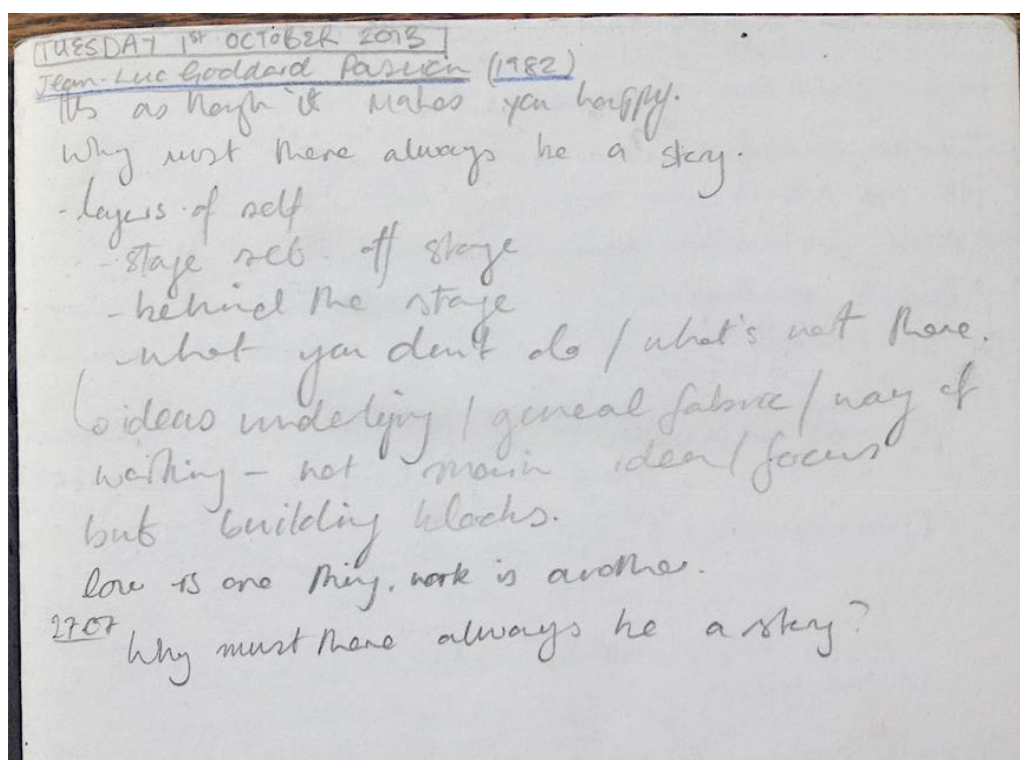 TUESDAY 1ST OCTOBER 2013
Jean-Luc Goddard Passion (1982)
Its as though it makes you happy.
Why must there always be a story.
- layers of self
- stage set - off stage
- behind the stage
- what you don't do / what's not there.
ideas underlying / general fabric / way of
working - not main idea / focus
but building blocks.
love is one thing, work is another.
27.07 Why must there always be a story?